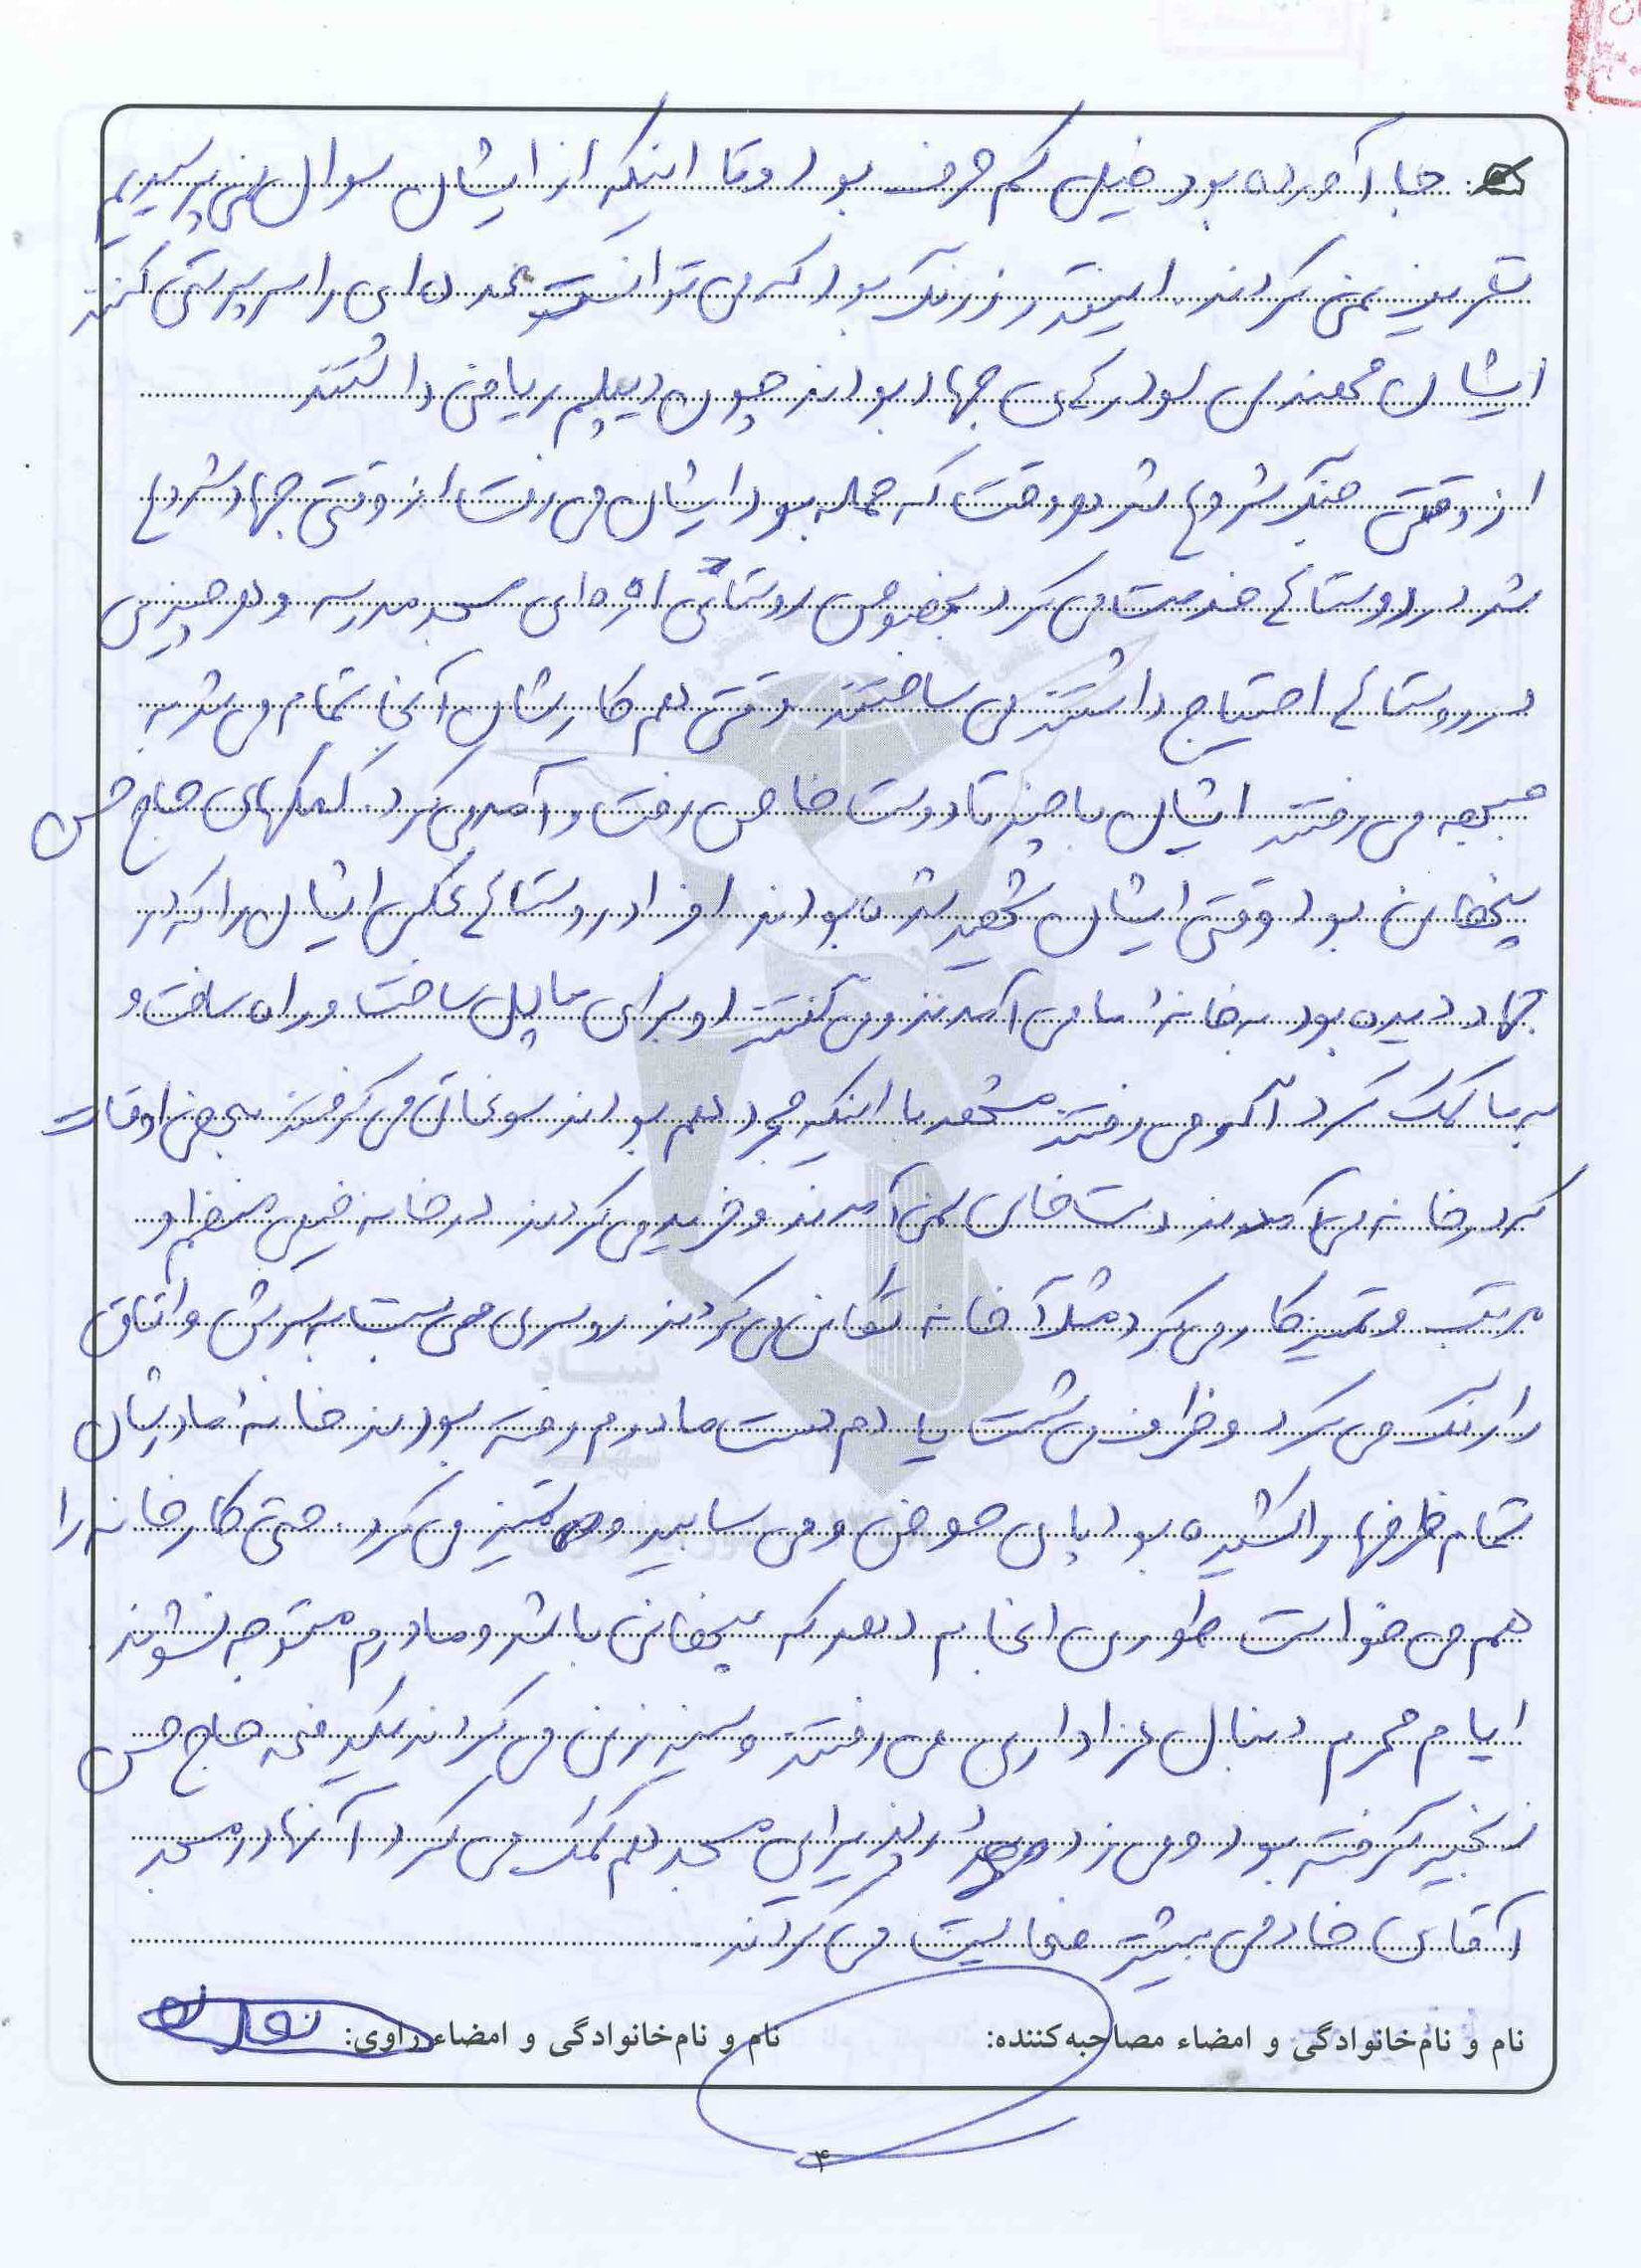 جا آورده بود خیلی کم حرف بود و تا اینکه از ایشان سوال نمی پرسیدیم
تعریف نمی کردند. اینقدر زرنگ بود که می توانست عده ای را سرپرستی کند
ایشان مهندس جهاد بودند چون دیپلم ریاضی داشتند
از وقتی جنگ شروع شد هر وقت که حمله بود ایشان می رفت از وقتی جهاد شروع
شد در روستائی خدمت می کرد بخصوص روستائی مسجد مدرسه و هر چیزی
در روستائی احتیاج داشتند می ساختند وقتی هم کارشان آنجا تمام می شد به
جبهه می رفتند ایشان با چند تا دوست خاص رفت و آمد می کرد. کمکهای حاج حسن
پنهانی بود وقتی ایشان شهید شده بودند افراد روستائی عکس ایشان را که در
جهاد دیده بود به خانه ما می آمدند و می گفتند او برای ما پل ساخت و راه ساخت و
به ما کمک کرد اگر می رفتند مشهد با اینکه مجرد هم بودند سوغاتی می گرفتند بعضی اوقات
که در خانه می آمدند دست خالی نمی آمدند و خرید می کردند در خانه خیلی منظم و
مرتب و تمیز کار می کرد مثلاً خانه تکانی می کردند روسری می بست به سرش و اتاق
را رنگ می کرد و ظرف می شست یا دم دست مادرم رفته بودند خانه مادرشان
تمام ظرفها را کشیده بود پای حوض و می سابید و تمیز می کرد. حتی کار خانه را
هم می خواست طوری انجام دهد که پنهانی باشد و مادرم متوجه نشوند
ایام محرم دنبال عزاداری می رفتند و سینه زنی می کردند یکدفعه حاج حسن
زنجیر گرفته بود و می زد در پذیرایی مسجد هم کمک می کرد آنها در مسجد
آقای خادمی بیشتر فعالیت می کردند
نام و نام‌خانوادگی و امضاء مصاحبه‌کننده: نام و نام‌خانوادگی و امضاء راوی:
۴